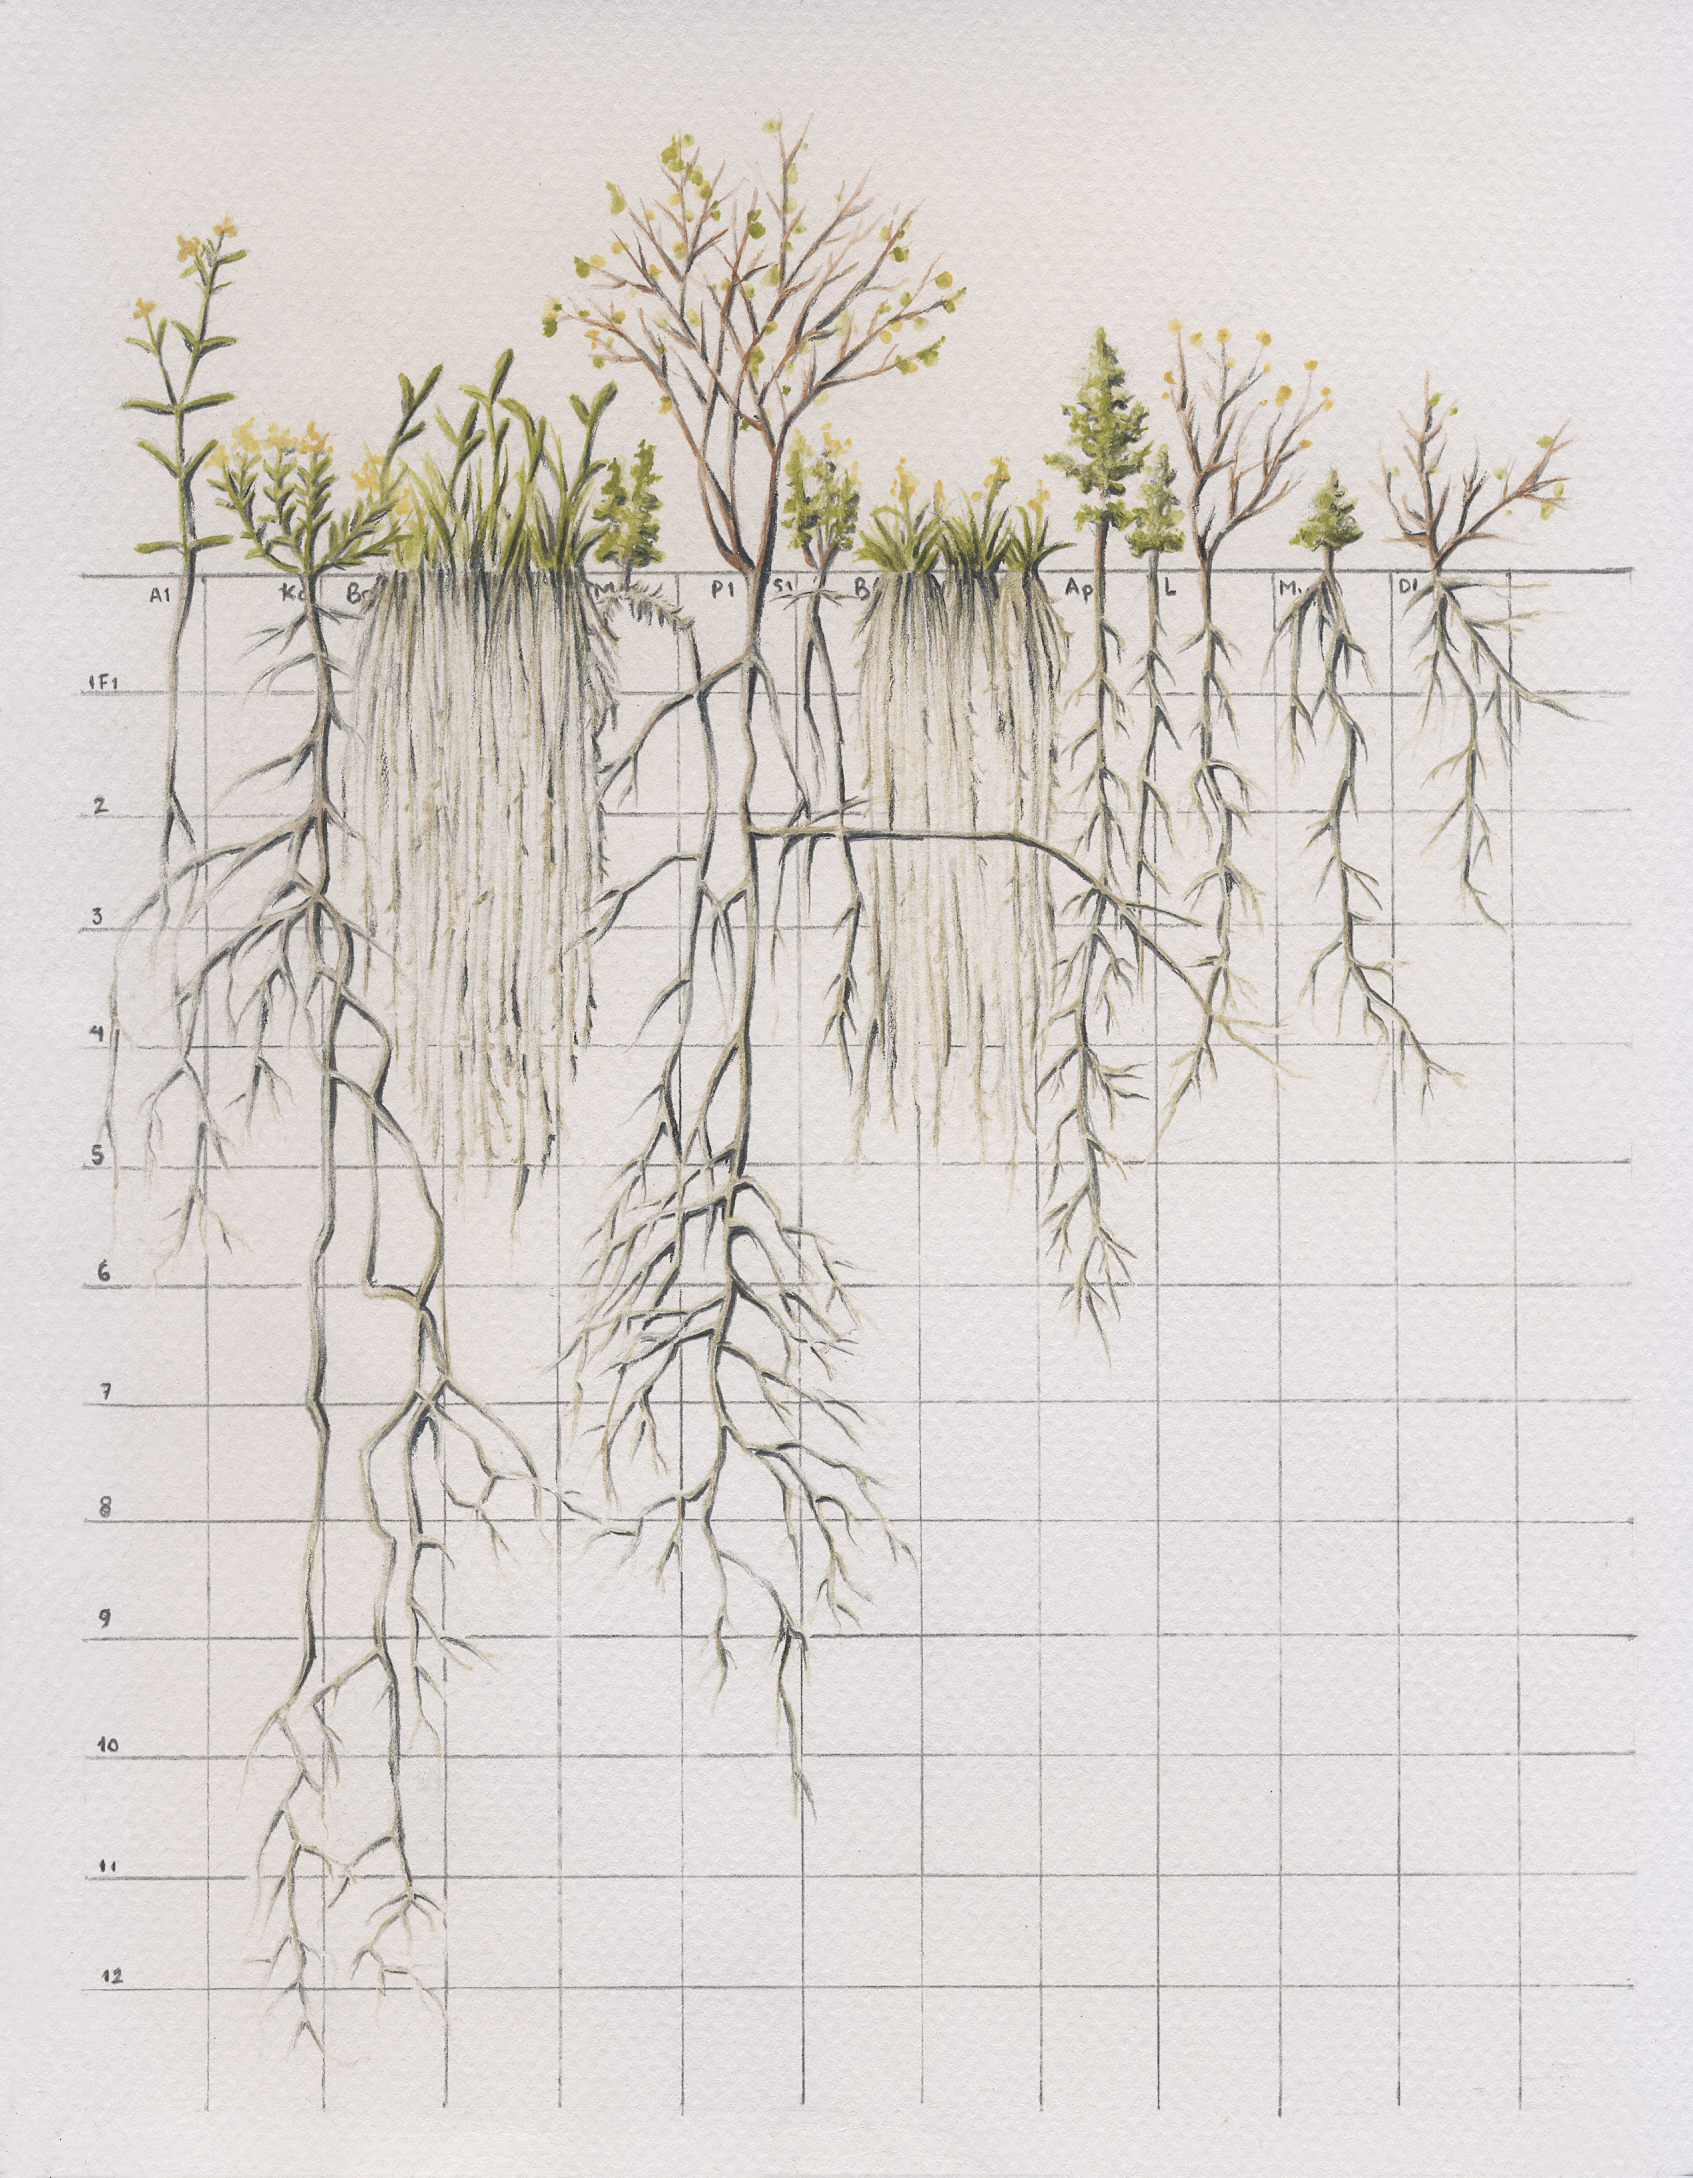 A1 Kc Br M P1 S1 B Ap L M. D1
1F1
2
3
4
5
6
7
8
9
10
11
12